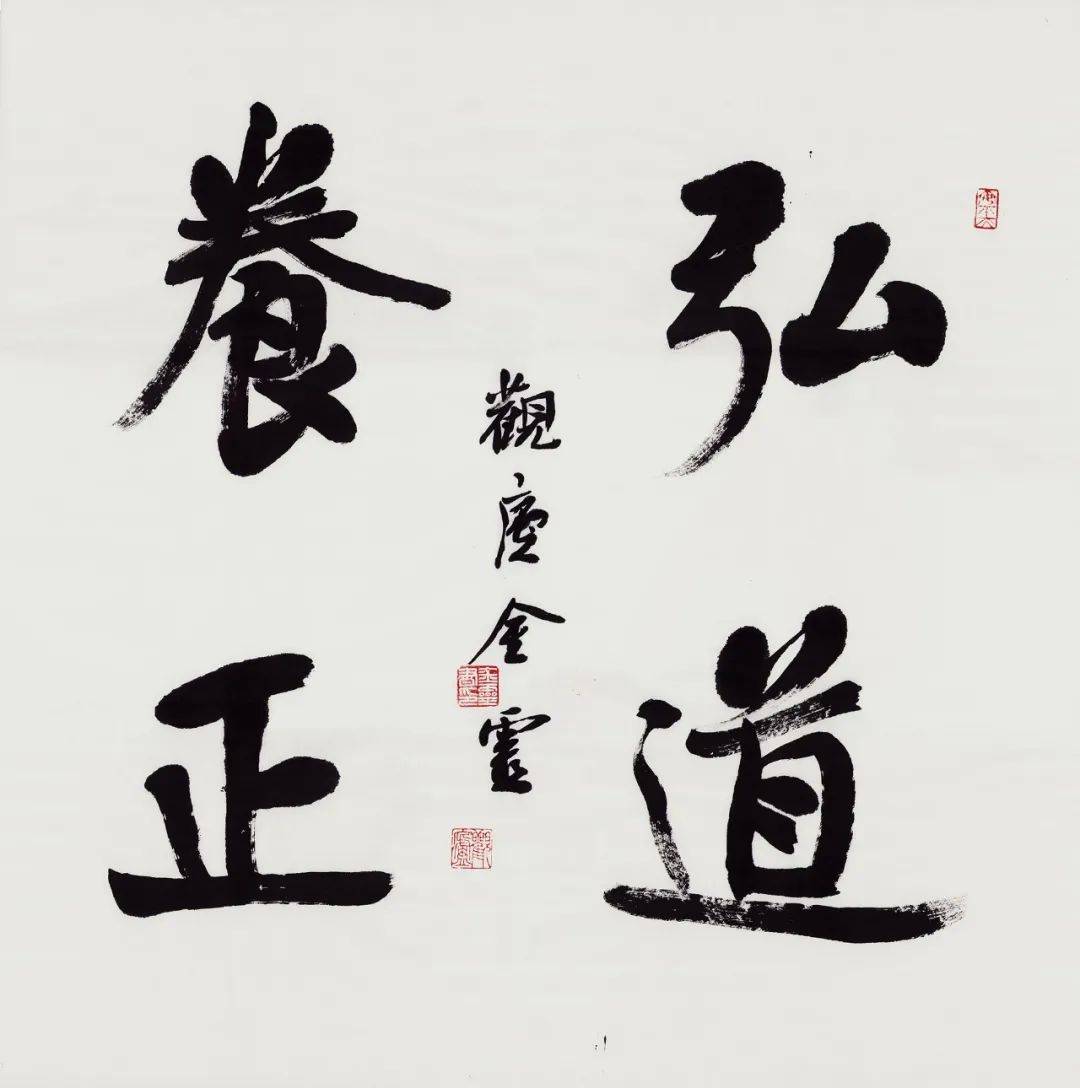 弘道
養正
觀廬金靈